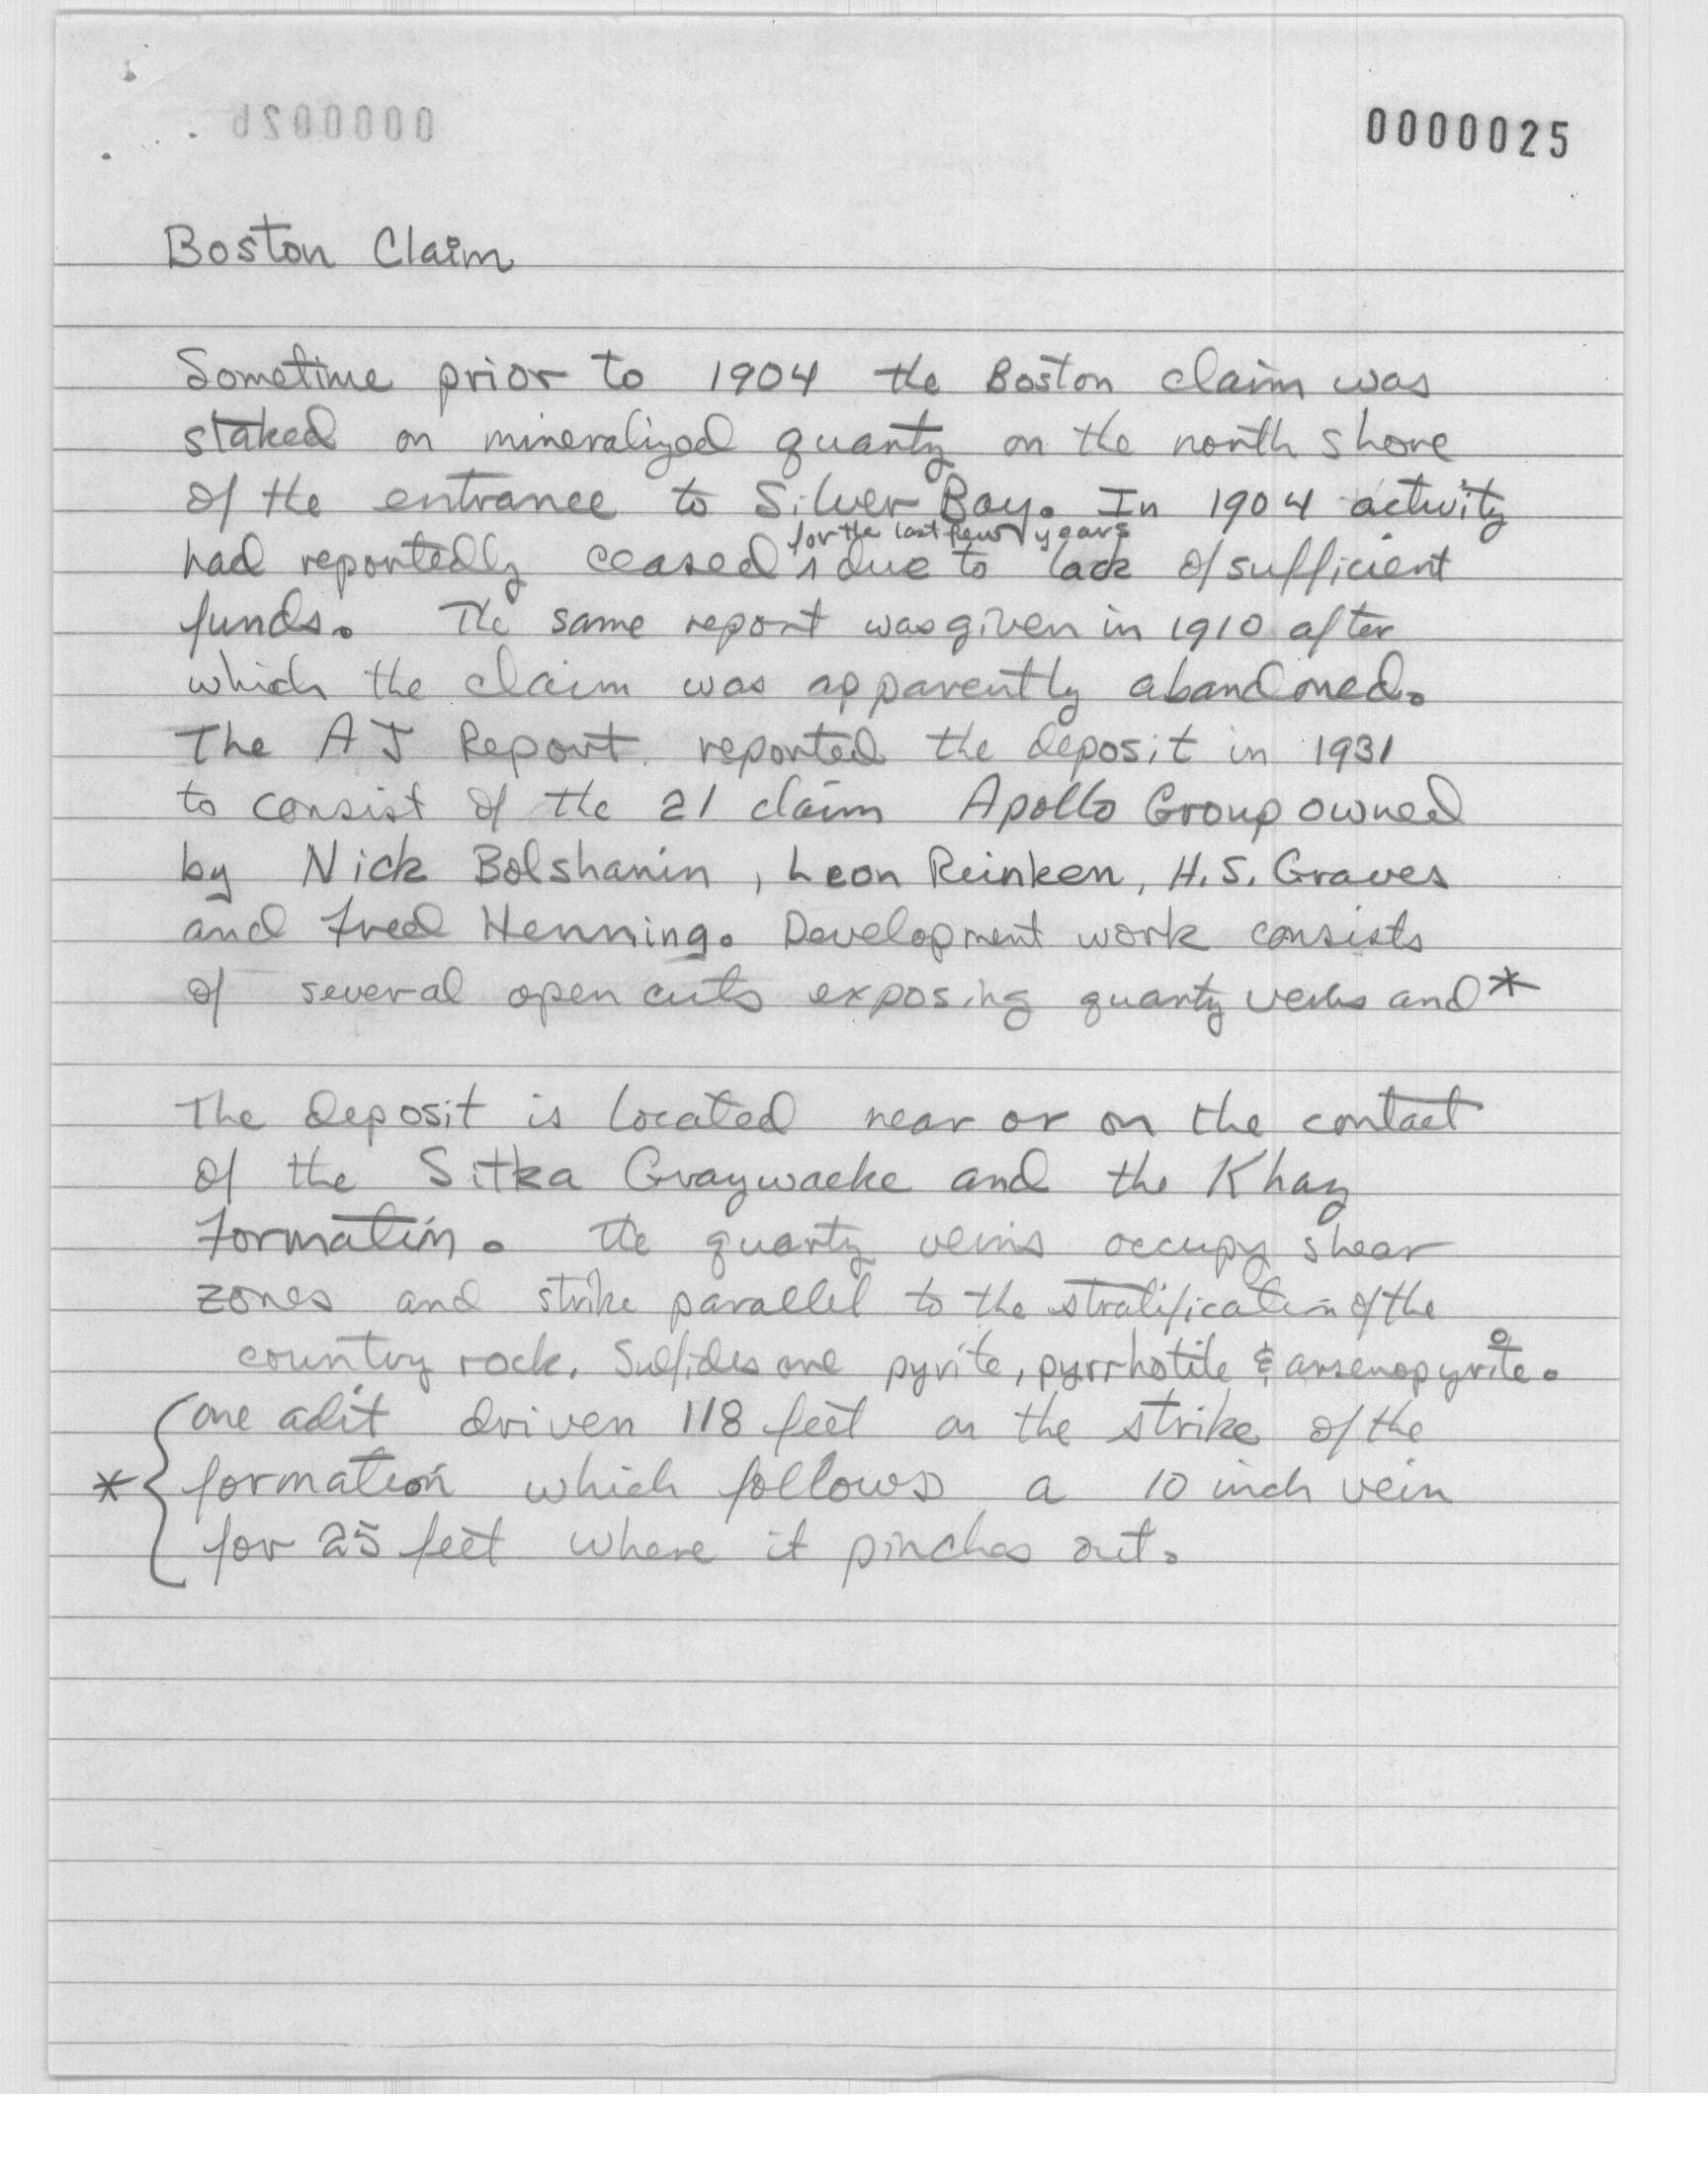 0000025
Boston Claim
Sometime prior to 1904 the Boston claim was
staked on mineralized quartz on the north shore
of the entrance to Silver Bay. In 1904 activity
for the last few years
had reportedly ceased ^ due to lack of sufficient
funds. The same report was given in 1910 after
which the claim was apparently abandoned.
The AJ Report reported the deposit in 1931
to consist of the 21 claim Apollo Group owned
by Nick Bolshanin, Leon Reinken, H.S. Graves
and Fred Henning. Development work consists
of several open cuts exposing quartz veins and *
The deposit is located near or on the contact
of the Sitka Graywacke and the Khaz
Formation. The quartz veins occupy shear
zones and strike parallel to the stratification of the
country rock. Sulfides are pyrite, pyrrhotite & arsenopyrite.
one adit driven 118 feet on the strike of the
* formation which follows a 10 inch vein
for 25 feet where it pinches out.